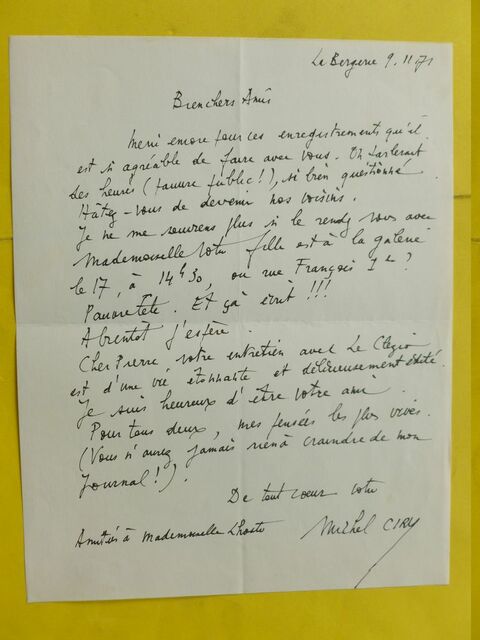 La Bergerie 9.11.71
Bien chers Amis
Merci encore pour ces enregistrements qu'il
est si agréable de faire avec vous. On parlerait
des heures (pauvre public!), si bien questionné
Hâtez-vous de devenir nos voisins.
Je ne me souviens plus si le rendez vous avec
Mademoiselle votre fille est à la galerie
le 17, à 14h30, ou rue François 1er ?
Pauvre tête. Et çà écrit !!!
A bientôt j'espère.
Cher Pierre, votre entretien avec Le Clézio
est d'une vie étonnante et délicieusement édité.
Je suis heureux d'être votre ami.
Pour tous deux, mes pensées les plus vives.
(Vous n'aurez jamais rien à craindre de mon
Journal!).
De tout coeur votre
Amitiés à Mademoiselle Lhoste
Michel CIRY